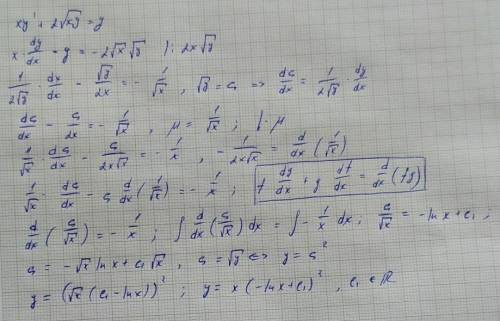 xy' + 2√xy = y
x · dy/dx - y = -2√x √y  ): 2x√y
1/2√y · dx/dx - √y/2x = - 1/√x , √y = s => ds/dx = 1/2√y · dy/dx
ds/dx - s/2x = - 1/√x , μ = 1/√x ; | · μ
1/√x · ds/dx - s/2x√x = - 1/x , - 1/2x√x = d/dx (1/√x)
1/√x · ds/dx - s d/dx (1/√x) = - 1/x ; f dg/dx + g df/dx = d/dx (fg)
d/dx (s/√x) = - 1/x ; ∫ d/dx (s/√x) dx = ∫ - 1/x dx ; s/√x = -ln x + c₁ ;
s = -√x ln x + c₁ √x , s = √y <=> y = s²
y = (√x (c₁ - ln x))² ; y = x (-ln x + c₁)² , c₁ ∈ ℝ